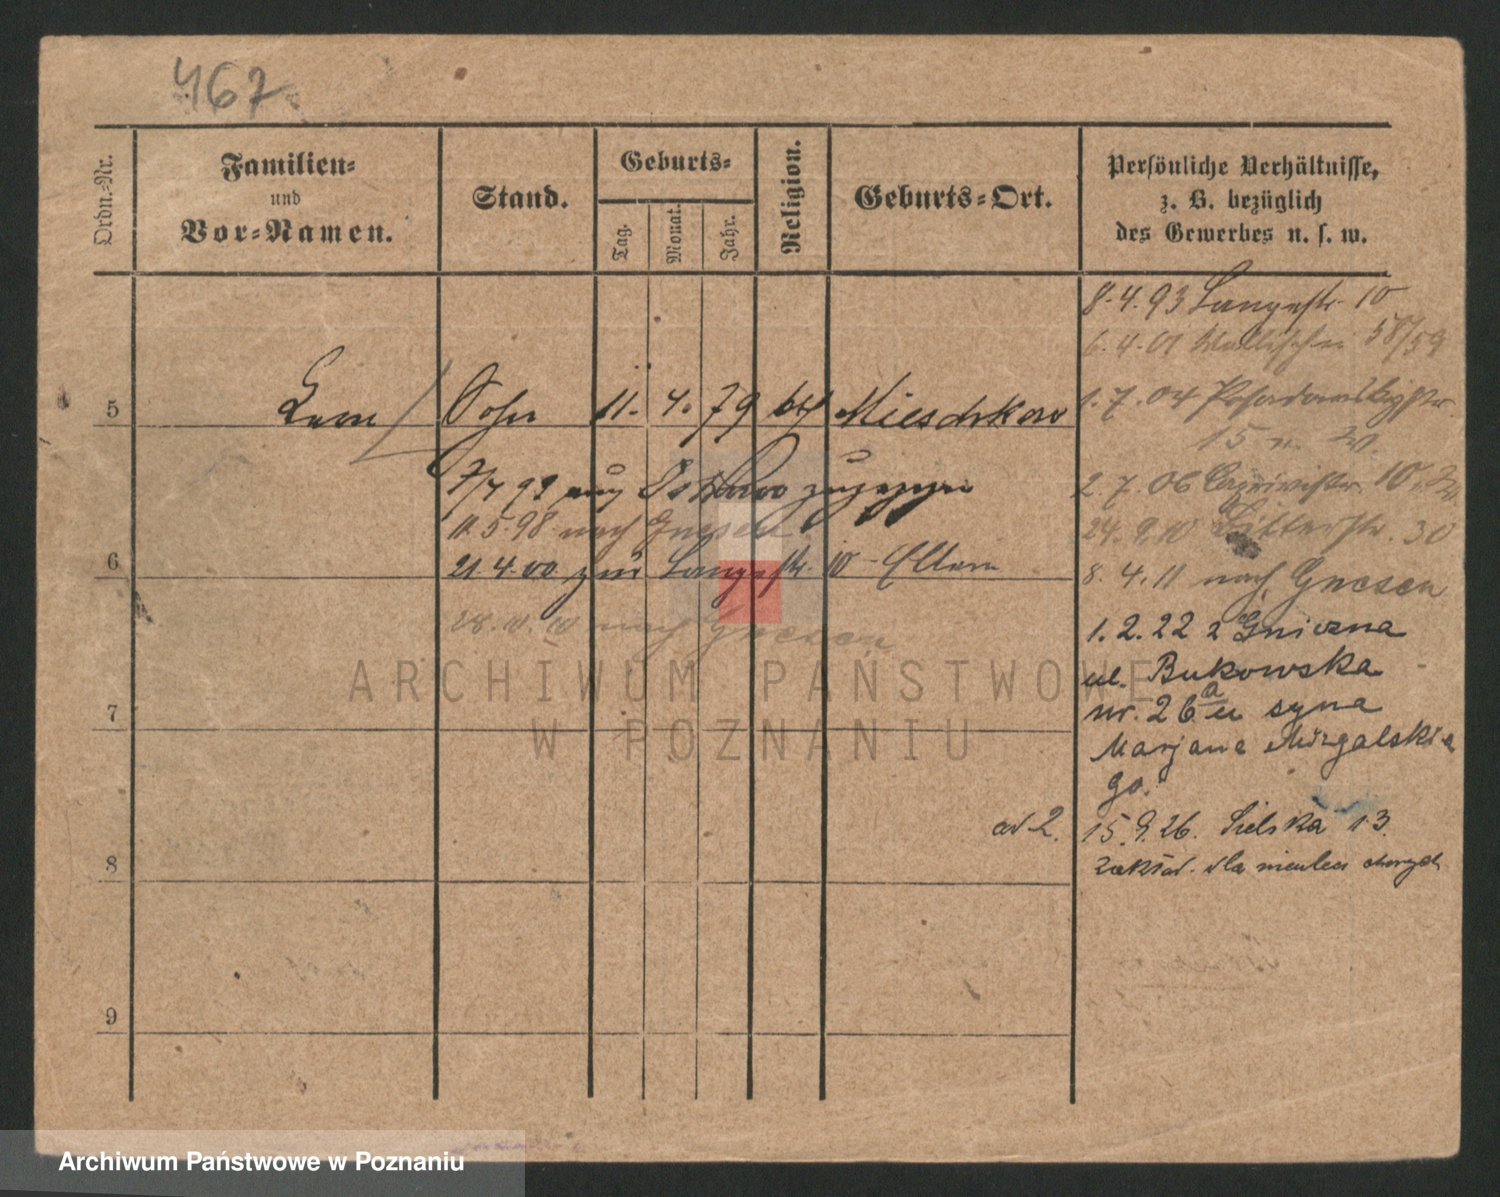 467
Ordn.-Nr.
Familien-
und
Vor-Namen.
Stand.
Geburts-
Tag.
Monat.
Jahr.
Religion.
Geburts-Ort.
Persönliche Verhältnisse,
z. B. bezüglich
des Gewerbes u. s. w.
8.4.93 Langestr. 10
6.4.01 Wallischei 58/59
5 Leon Sohn 11. 4. 79 kth Mieschkow
1.7.04
15 n.
7/7 99 aus Ostrowo zugezogen
2.7.06 10
11.5.98 nach Gnesen
24.9.10 Ritterstr. 30
6
21.4.00 zur Langestr. 10 Eltern
8.4.11 nach Gnesen
nach Gnesen
1.2.22 z Gniezna
ul. Bukowska
nr. 26a u syna
Marjana Mizgalskie
go.
7
ad 2. 15.9.26. Sielska 13.
zakład. dla nieulecz chorych
8
9
ARCHIWUM PAŃSTWOWE
W POZNANIU
Archiwum Państwowe w Poznaniu